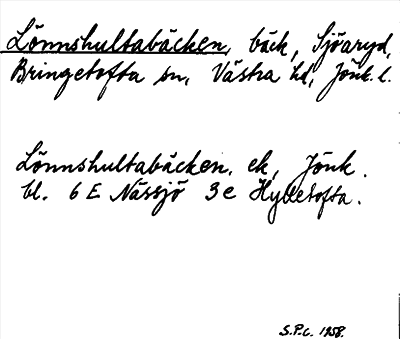 Lönnshultabäcken, bäck, Sjöaryd,
Bringetofta sn, Västra hd, Jönk. l.
Lönnshultabäcken. ek, Jönk.
bl. 6 E Nässjö 3 e Hylletofta.
S.P-C. 1958.